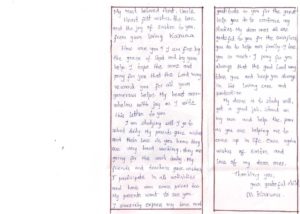 My most beloved Aunt, Uncle
Heart felt wishes the love
and the joy of Easter to you,
from your loving Karuna.
How are you? I am fine by
the grace of God and by your
help. I hope the same and
pray for you that the Lord may
reward you for all your
generous helps. My heart over
whelms with joy as I write
this letter to you.
I am studying well. I go to
school daily. My parents
and their love to you. Every they
are very hard working they are
going for the work daily. My
friends and teachers good wishes
I participate in all activities
and have won some prizes too
My parents want to see you.
I sincerely express my love and
gratitude to you for the great
help you do to continue my
studies. My dear ones all are
grateful to you for the sacrifices
you do to help our family. I love
you so much. I pray for you
always that the good Lord may
bless you and keep you always
in His loving care and
protection.
My desire is to study well,
get a good job, stand on my
own and help the poor
as you are helping me to
come up in life. Once again
wishes of Easter and
love of my dear ones.
Thanking you,
your grateful child
M. Karuna.